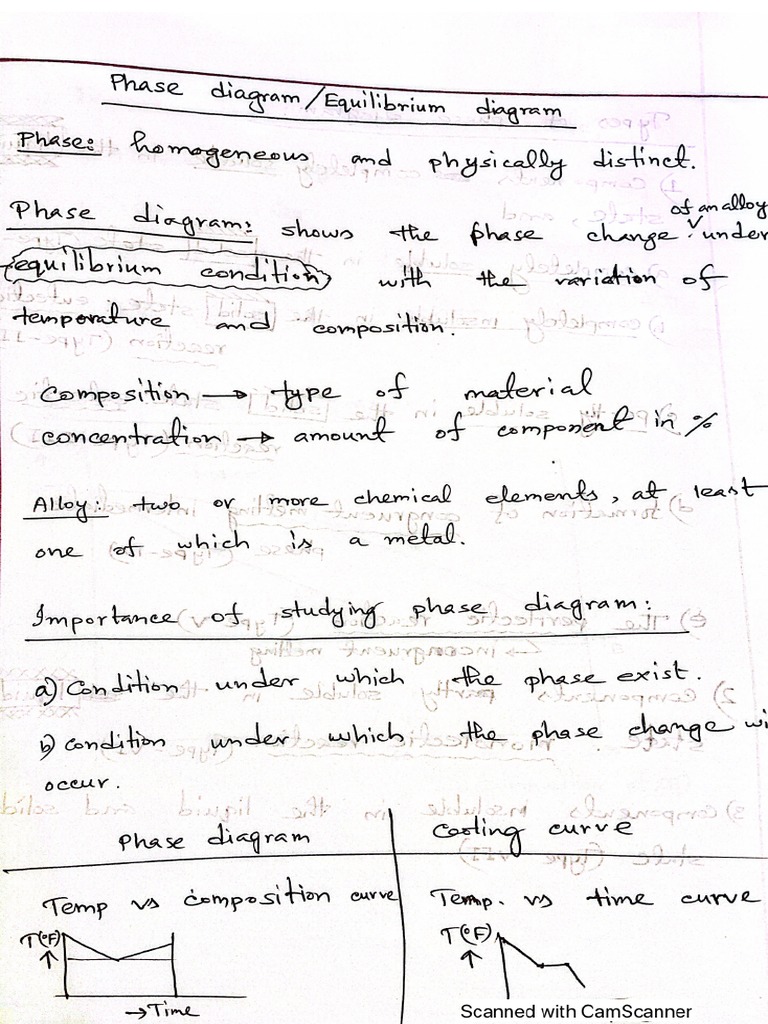 Phase diagram/Equilibrium diagram
Phase: homogeneous and physically distinct.
of an alloy
Phase diagram: shows the phase change under
equilibrium condition with the variation of
temperature and composition.
composition → type of material
concentration → amount of component in %
Alloy: two or more chemical elements, at least
one of which is a metal.
Importance of studying phase diagram:
a) Condition under which the phase exist.
b) condition under which the phase change wi
occur.
Phase diagram Cooling curve
Temp vs composition curve Temp. vs time curve
T(°F) T(°F)
→Time
Scanned with CamScanner